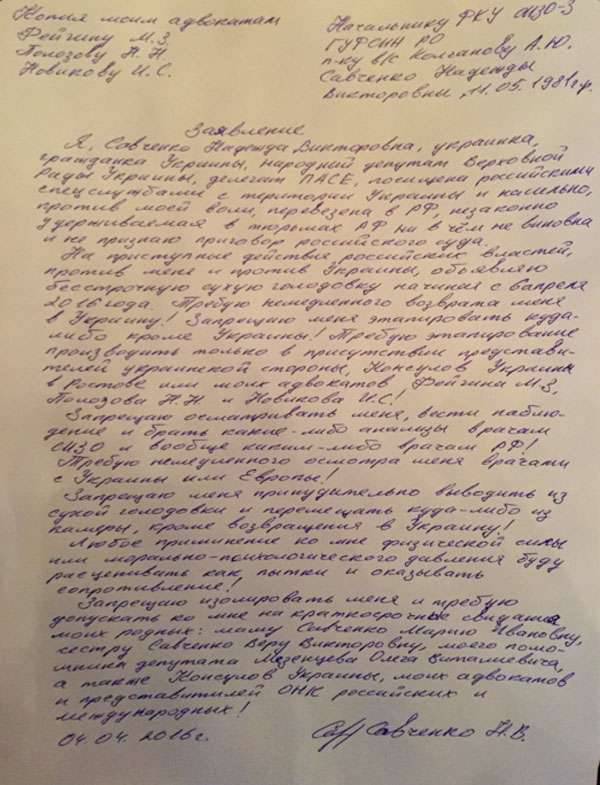 Копия моим адвокатам
Фейгину М.З.
Полозову Н.Н.
Новикову И.С.
Начальнику ФКУ СИЗО-3
ГУФСИН РО
п-ку в/с Колганову А.Ю.
Савченко Надежды
Викторовны, 11.05.1981г.р.
Заявление
Я, Савченко Надежда Викторовна, украинка,
гражданка Украины, народный депутат Верховной
Рады Украины, делегат ПАСЕ, похищена российскими
спецслужбами с територии Украины и насильно,
против моей воли, перевезена в РФ, незаконно
удерживаемая в тюрьмах РФ ни в чём не виновна
и не признаю приговор российского суда.
На приступные действия российских властей,
против меня и против Украины, объявляю
бессрочную сухую голодовку начиная с 6 апреля
2016 года. Требую немедленного возврата меня
в Украину! Запрещаю меня этапировать куда-
либо кроме Украины! Требую этапирование
производить только в присутствии представи-
телей украинской стороны, Консулов Украины
в Ростове или моих адвокатов Фейгина М.З,
Полозова Н.Н и Новикова И.С!
Запрещаю осматривать меня, вести наблю-
дение и брать какие-либо анализы врачам
СИЗО и вообще каким-либо врачам РФ!
Требую немедленного осмотра меня врачами
с Украины или Европы!
Запрещаю меня принудительно выводить из
сухой голодовки и перемещать куда-либо из
камеры, кроме возвращения в Украину!
Любое приминение ко мне физической силы
или морально-психологического давления буду
расценивать как пытки и оказывать
сопротивление!
Запрещаю изолировать меня и требую
допускать ко мне на краткосрочные свидания
моих родных: маму Савченко Марию Ивановну,
сестру Савченко Веру Викторовну, моего помо-
шника депутата Мезенцева Олега Виталиевича,
а также Консулов Украины, моих адвокатов
и представителей ОНК российских и
международных!
04.04.2016г.
Савченко Н.В.